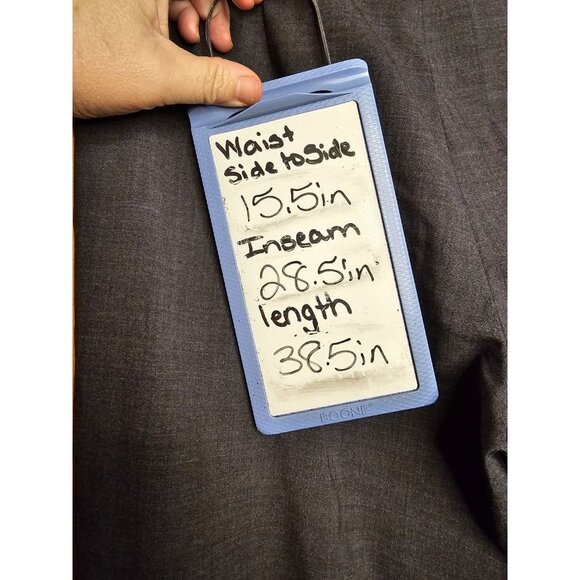 Waist
Side to Side
15.5in
Inseam
28.5in
length
38.5in
BOONE